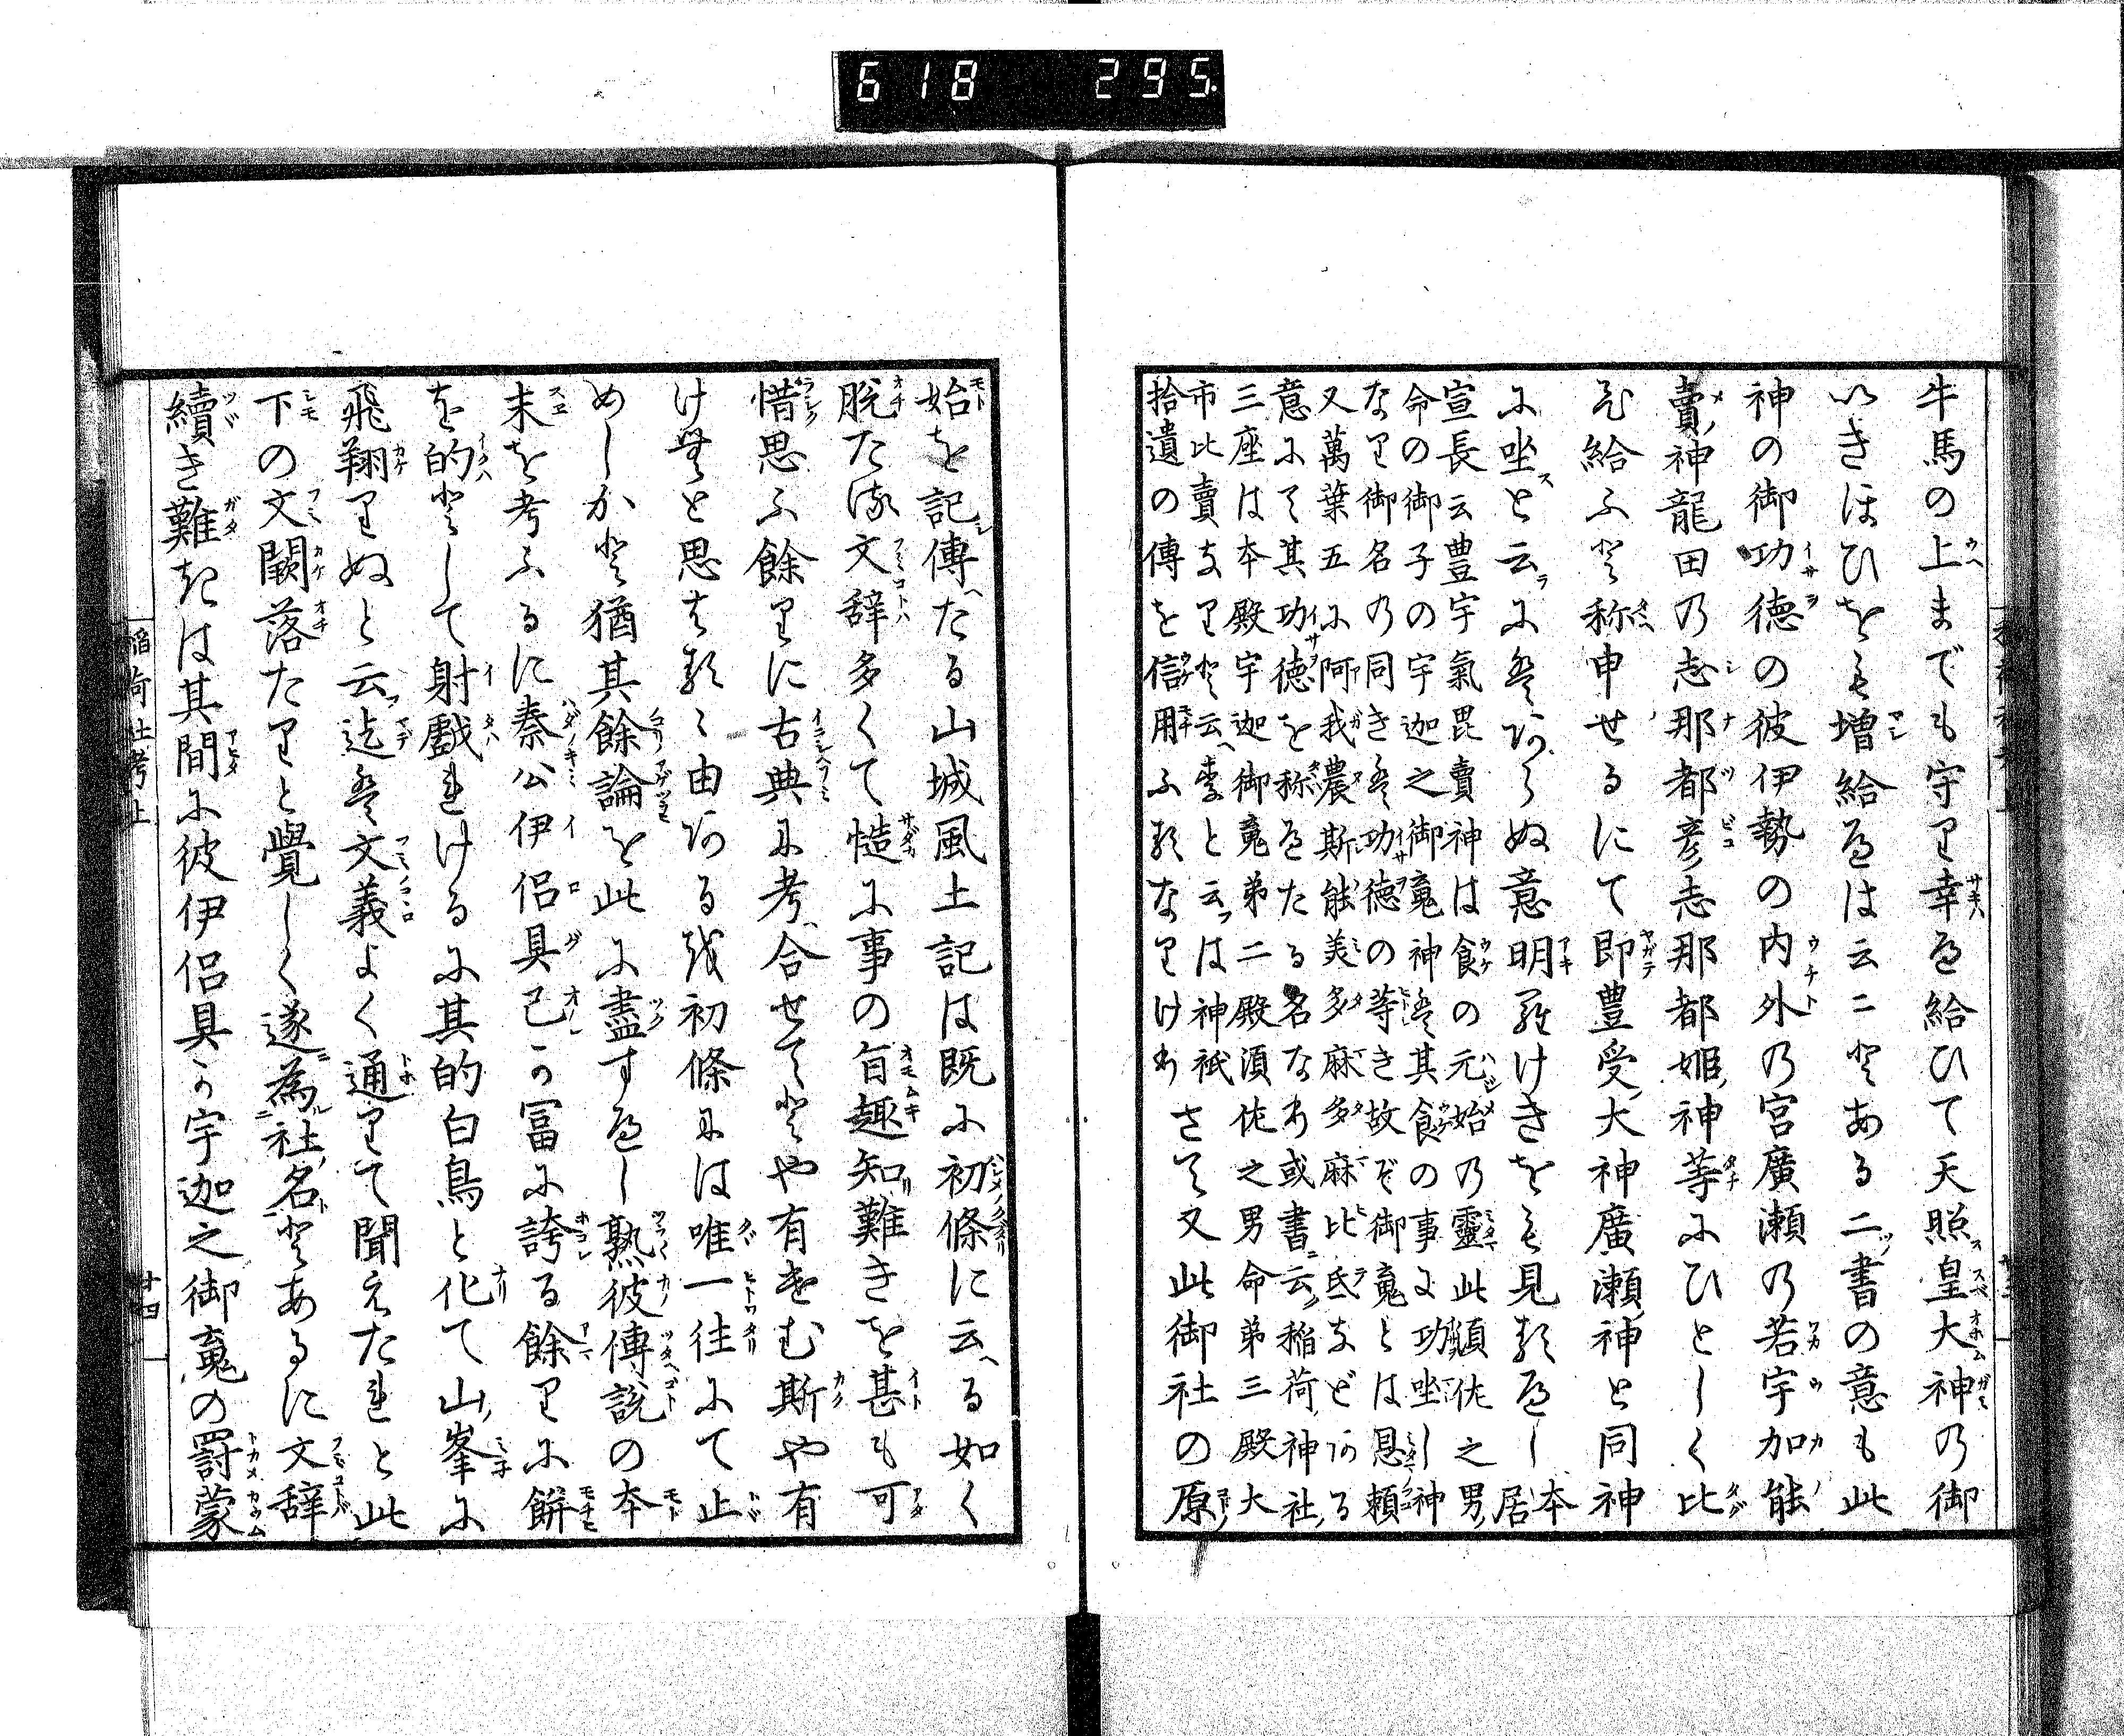 618 295
牛馬の上までも守り幸へ給ひて天照皇大神乃御
いきほひをも増給へは云ニとある二書の意も此
神の御功徳の彼伊勢の内外乃宮廣瀬乃若宇加能
賣神龍田乃志那都彦志那都姫神等にひとしく比
え給ふと称申せるにて即豊受大神廣瀬神と同神
に坐と云に𛂞あらぬ意明羅けきをも見るへし本居
宣長云豊宇氣毘賣神は食の元始乃靈此須佐之男
命の御子の宇迦之御䰟神𛂞其食の事に功坐し神
なり御名の同き𛂞功徳の等き故ぞ御䰟とは恩頼
又萬葉五に阿我農斯能美多麻多麻比氐などある
意にて其功徳を称へたる名なり或書云稲荷神社
三座は本殿宇迦御䰟第二殿須佐之男命第三殿大
市比賣なりと云と云は神祇
拾遺の傳を信用ふるなりけりさて又此御社の原
始を記傳たる山城風土記は既に初條に云る如く
脱たる文辞多くて慥に事の旨趣知難きを甚も可
惜思ふ餘りに古典に考合せてとや有けむ斯や有
けむと思はるゝ由ある説初條には唯一往にて止
めしかと猶其餘論を此に盡すへし熟彼傳説の本
末を考ふるに秦公伊侶具己か冨に誇る餘りに餅
を的として射戯れけるに其的白鳥と化て山峯に
飛翔りぬと云迄𛂞文義よく通りて聞えたれと此
下の文闕落たりと覺しく遂為社名とあるに文辞
續き難きは其間に彼伊侶具か宇迦之御䰟の罸蒙
稲荷社考上
廿四